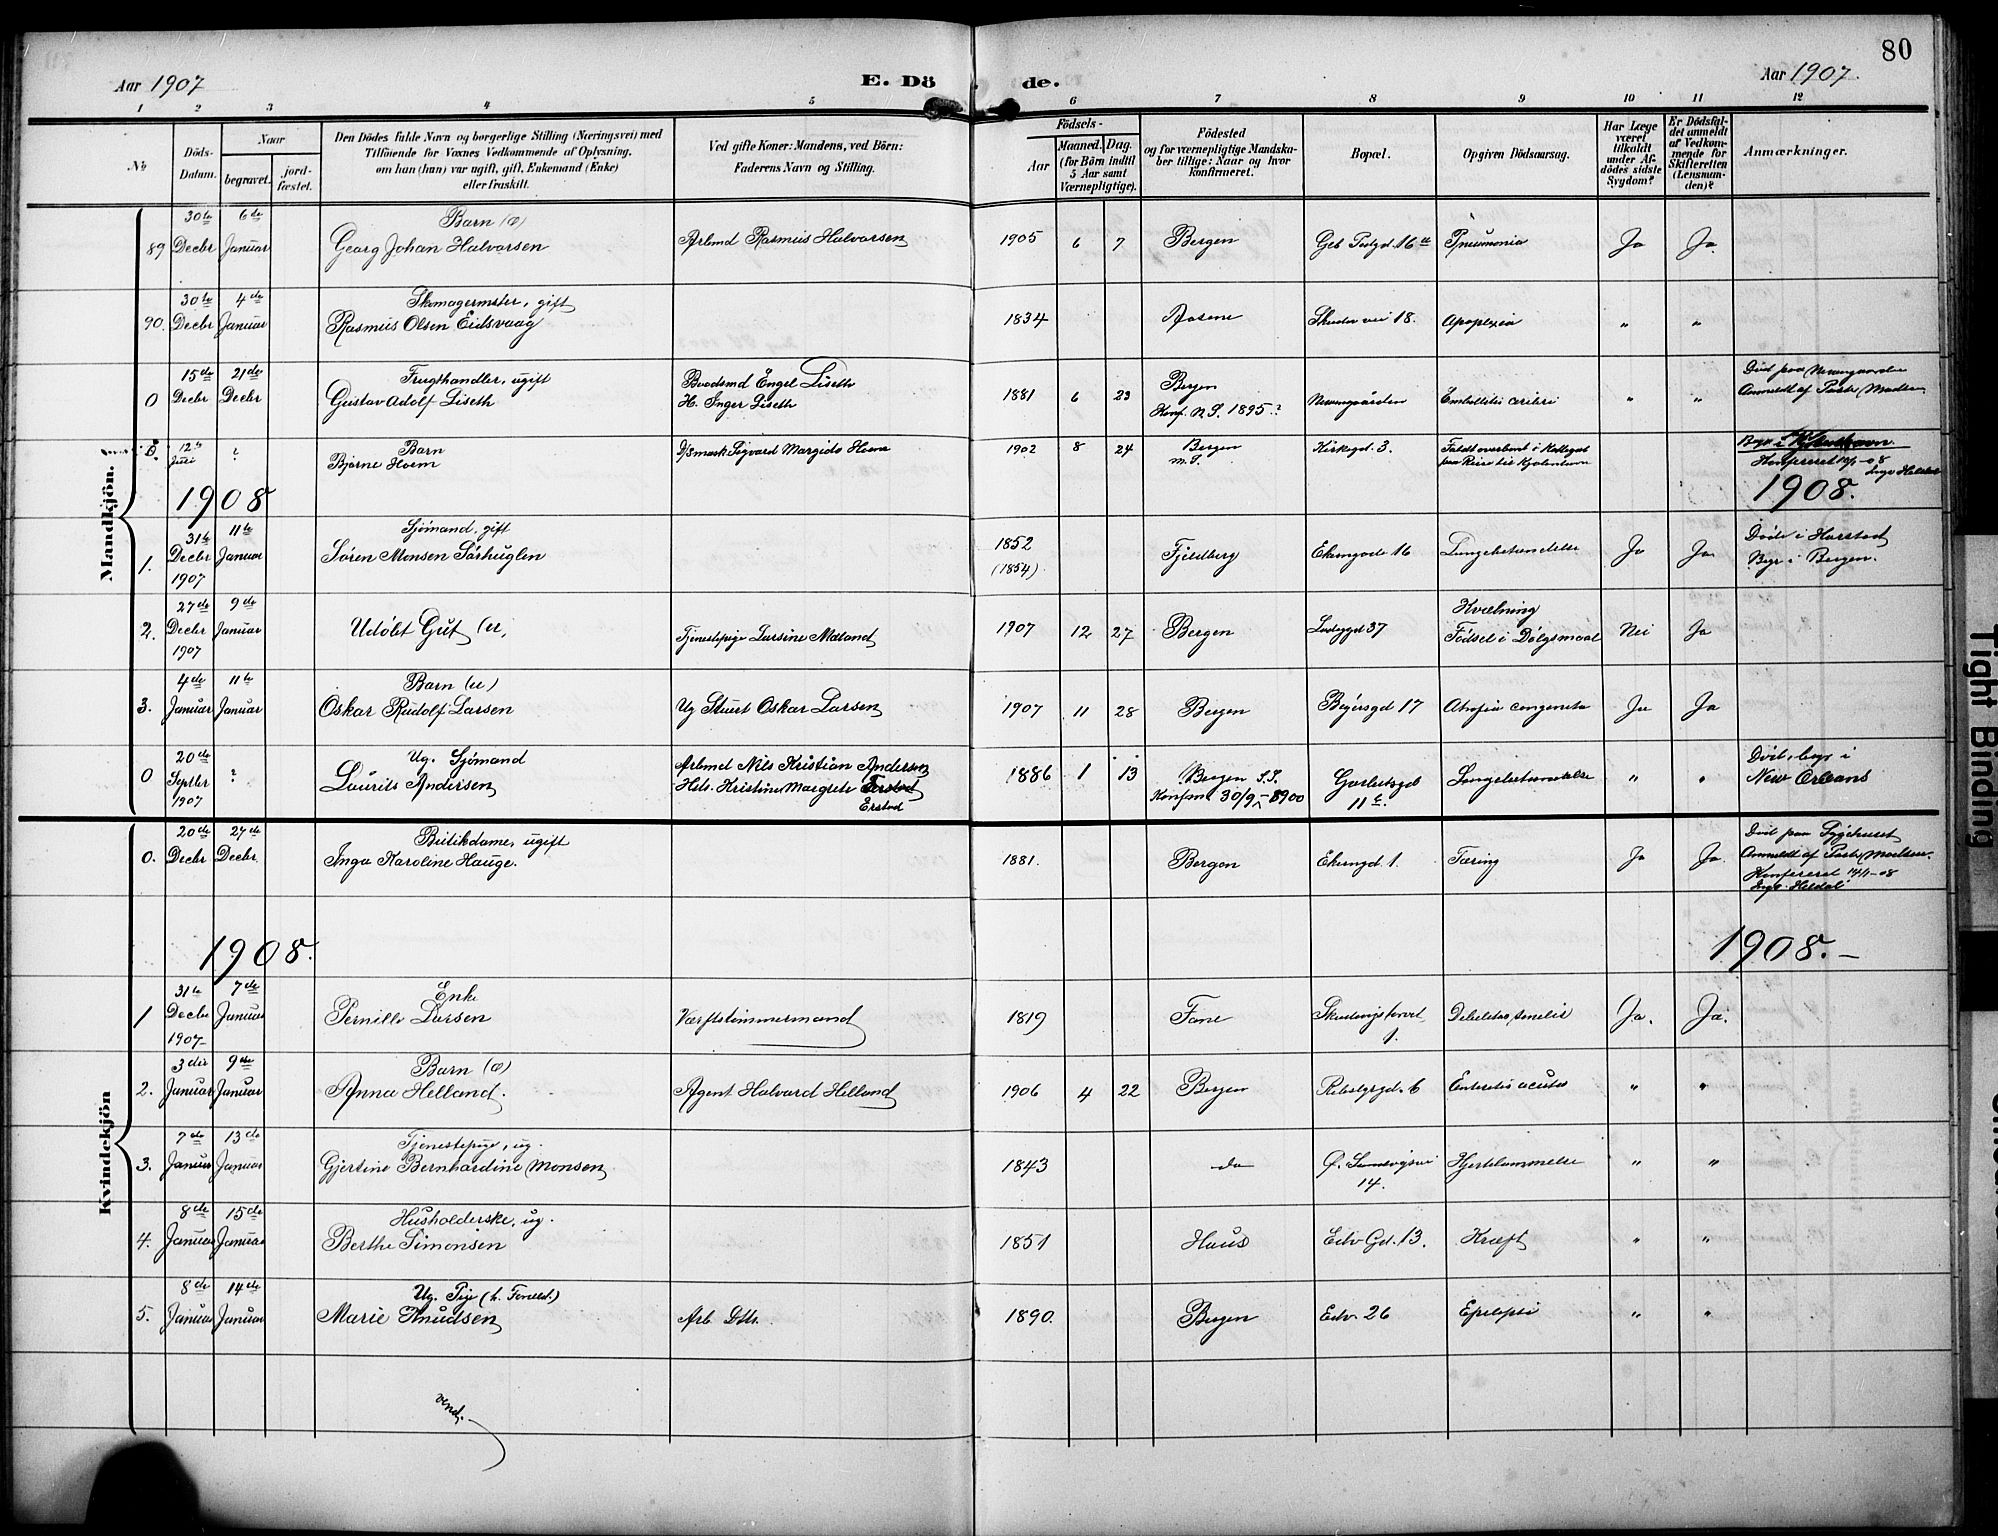 80
Aar 1907
E. Dö
de.
Aar 1907.
1 2 3 4 5 6 7 8 9 10 11 12
No
Döds-
Datum.
Naar
begravet.
jord-
fæstet.
Den Dödes fulde Navn og borgerlige Stilling (Næringsvei) med
Tilföiende for Voxnes Vedkommende af Oplysning,
om han (hun) var ugift, gift, Enkemand (Enke)
eller fraskilt.
Ved gifte Koner: Mandens, ved Börn:
Faderens Navn og Stilling.
Födsels-
Aar
Maaned.
Dag.
(for Börn indtil
5 Aar samt
Værnepligtige).
Födested
og for værnepligtige Mandska-
ber tillige: Naar og hvor
konfirmeret.
Bopæl.
Opgiven Dödsaarsag.
Har Læge
været
tilkaldt
under Af-
dödes sidste
Sygdom?
Er Dödsfal-
det anmeldt
af Vedkom-
mende for
Skifteretten
(Lensman-
den)?
Anmærkninger.
Mandkjön.
30te 6te Barn (æ)
89 Decbr Januar Georg Johan Halvorsen Arbmd Rasmus Halvorsen 1905 6 7 Bergen 16a Pneumonia Ja Ja.
30te 4de Skomagermster, gift
90. Decbr Januar Rasmus Olsen Eidsvaag 1834 Aasene vei 18. Apoplexia " "
15de 21de Frugthandler, ugift Engel Liseth
0 Decbr Decbr Gustav Adolf Liseth H. Inger Liseth 1881 6 23 Bergen
Konf. N.P. 1895? " "
Död paa
Anmeldt af
12te Juli ? Barn
Bjarne Hoem Sigvard Hoem 1902 8 24 Bergen Kirkegd 3. Faldt overbord i Kattegat
paa Reise til Kjøbenhavn
1908
1908.
31te 11te Sjømand, gift
1. Decbr Januar Søren Monsen Sørhuglen 1852 Fjeldberg 16 Lungebetændelse Ja Ja. Døde i Harstad
1907 (1854) Begr i Bergen.
27de 9de Kvælning
2. Decbr Januar Udøbt Gut (u, Tjenestepige Larsine 1907 12 27 Bergen 37 Fødsel i Dølgsmaal Nei Ja
1907
4de 11te Barn (u)
3. Januar Januar Oskar Rudolf Larsen Ug Stuert Oskar Larsen 1907 11 28 Bergen 17 Atrofia congenita Ja Ja
20de Ug. Sjømand Arbmd Nils Kristian Andersen
0 Septbr ? Laurits Andersen Kristine Margrete 1886 1 13 Bergen Lungebetændelse " " Død, begr i
1907 Erstad 30/9 1900 11 c. New Orleans
Kvindekjön
20de 27de Butikdame, ugift
0. Decbr Decbr Inga Karoline Hauge. 1881. Bergen 1. Tæring Ja Ja. Død paa Sygehuset
Anmeldt af
Konfereret
1908.
1908.–
31te 7de Enke
1 Decbr Januar Pernille Larsen Værftstømmermand 1819 Fane 1. Debilitas senilis Ja. Ja.
1907–
3die 9de Barn (æ)
2. Januar Januar Anna Helland. Agent Halvard Helland 1906 4 22 Bergen 6 Enteritis acuta " "
7de 13de Tjenestepige, ug.
3. Januar Januar Gjertine Bernhardine Monsen 1843 do 14. Hjertelammelse " "
8de 15de Husholderske, ug.
4. Januar Januar Berthe Simonsen 1851 Haus 13. Kræft " "
8de 14de Ug. Pige (h. Foreld.)
5. Januar Januar Marie Knudsen Arb 1890. Bergen 26 Epilepsi " "
vend.
Tight Binding